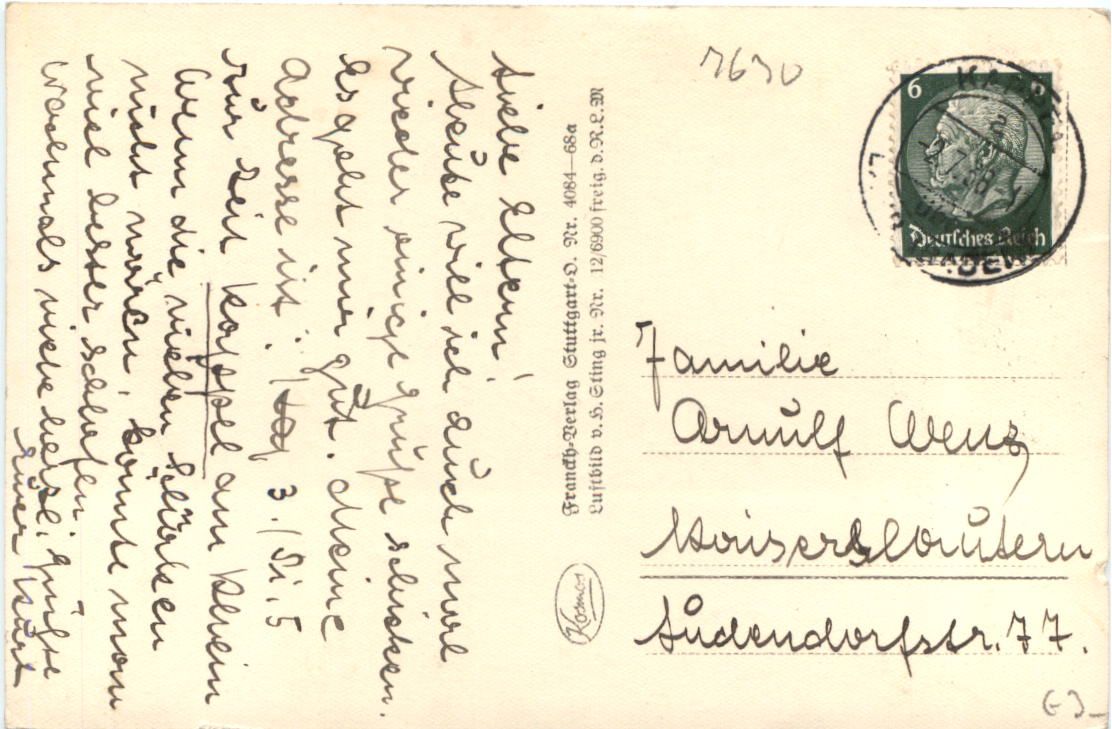 Liebe Eltern!
Heute will ich auch mal
wieder einige Grüße schicken.
Es geht mir gut. Meine
Adresse ist: 3./Pi. 5
zur Zeit Kappel am Rhein
Wenn die vielen Schnaken
nicht wären, könnte man
viel besser schlafen
Nochmals viele herzl. Grüße
Euer Kurt
Franckh-Verlag Stuttgart-O. Nr. 4084—68a
Luftbild v. H. Sting jr. Nr. 12/6900 freig. d. R.L.M
Kosmos
7630
6
Deutsches Reich
KAPPEL
BADEN
Familie
Arnulf Wenz
Kaiserslautern
Ludendorfstr. 77.